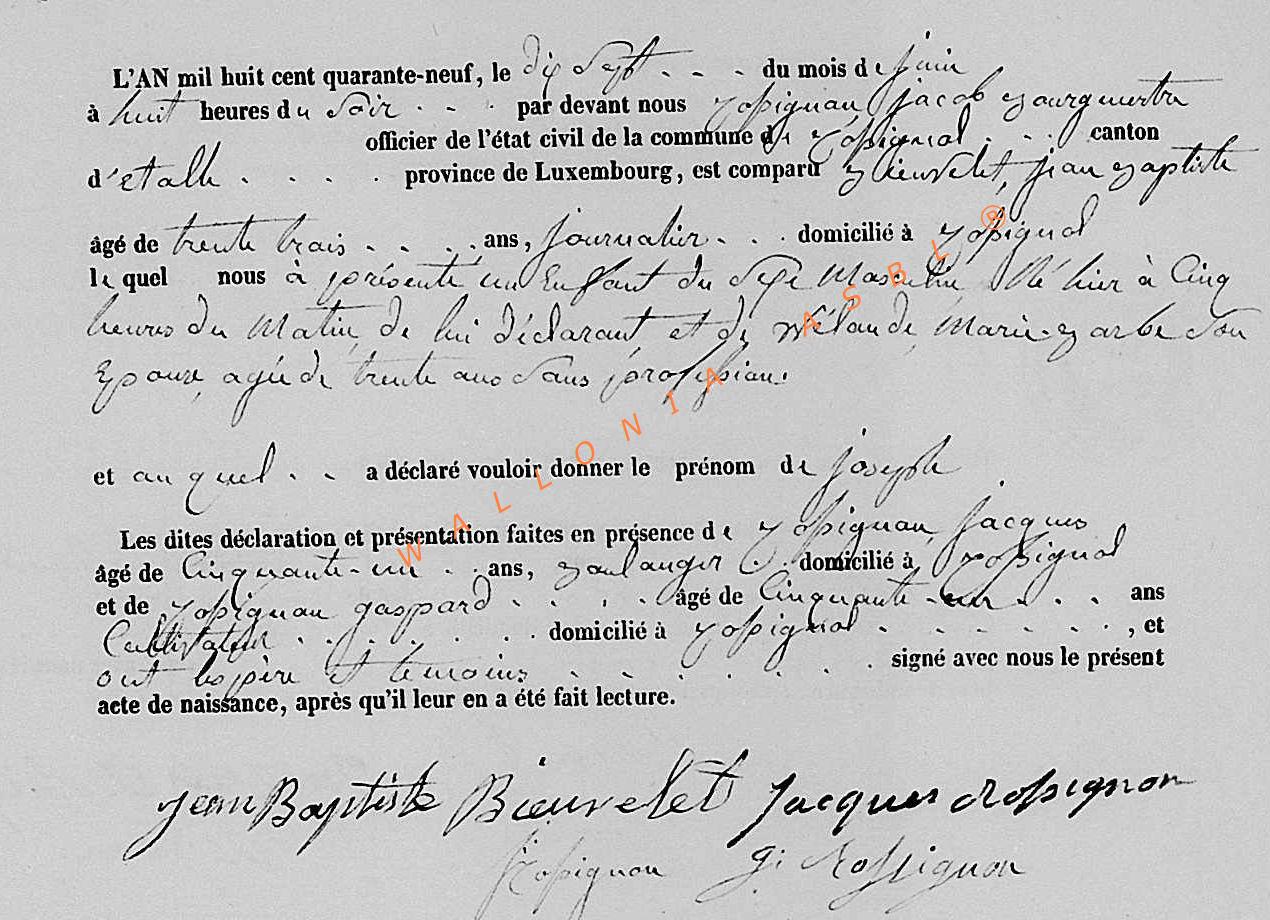 L'AN mil huit cent quarante-neuf, le dix Sept du mois de juin
à huit heures du Soir par devant nous Rossignon, jacob Bourgmestre
officier de l'état civil de la commune de Rossignol canton
d'etalle province de Luxembourg, est comparu Bieuvelet, jean Baptiste
âgé de trente trois ans, journalier domicilié à Rossignol
lequel nous à présenté un Enfant du Sexe Masculin, Né hier à Cinq
heures du Matin, de lui déclarant, et de Mélande, Marie-Barbe Son
Epouse, agée de trente ans Sans profession.
et auquel a déclaré vouloir donner le prénom de joseph
Les dites déclaration et présentation faites en présence de Rossignon, jacques
âgé de Cinquante-un ans, Boulanger domicilié à Rossignol
et de Rossignon gaspard âgé de Cinquante-un ans
Cultivateur domicilié à Rossignol , et
ont les père et témoins signé avec nous le présent
acte de naissance, après qu'il leur en a été fait lecture.
jean Baptiste Bieuvelet jacques Rossignon
Rossignon g: Rossignon
WALLONIA ASBL ®